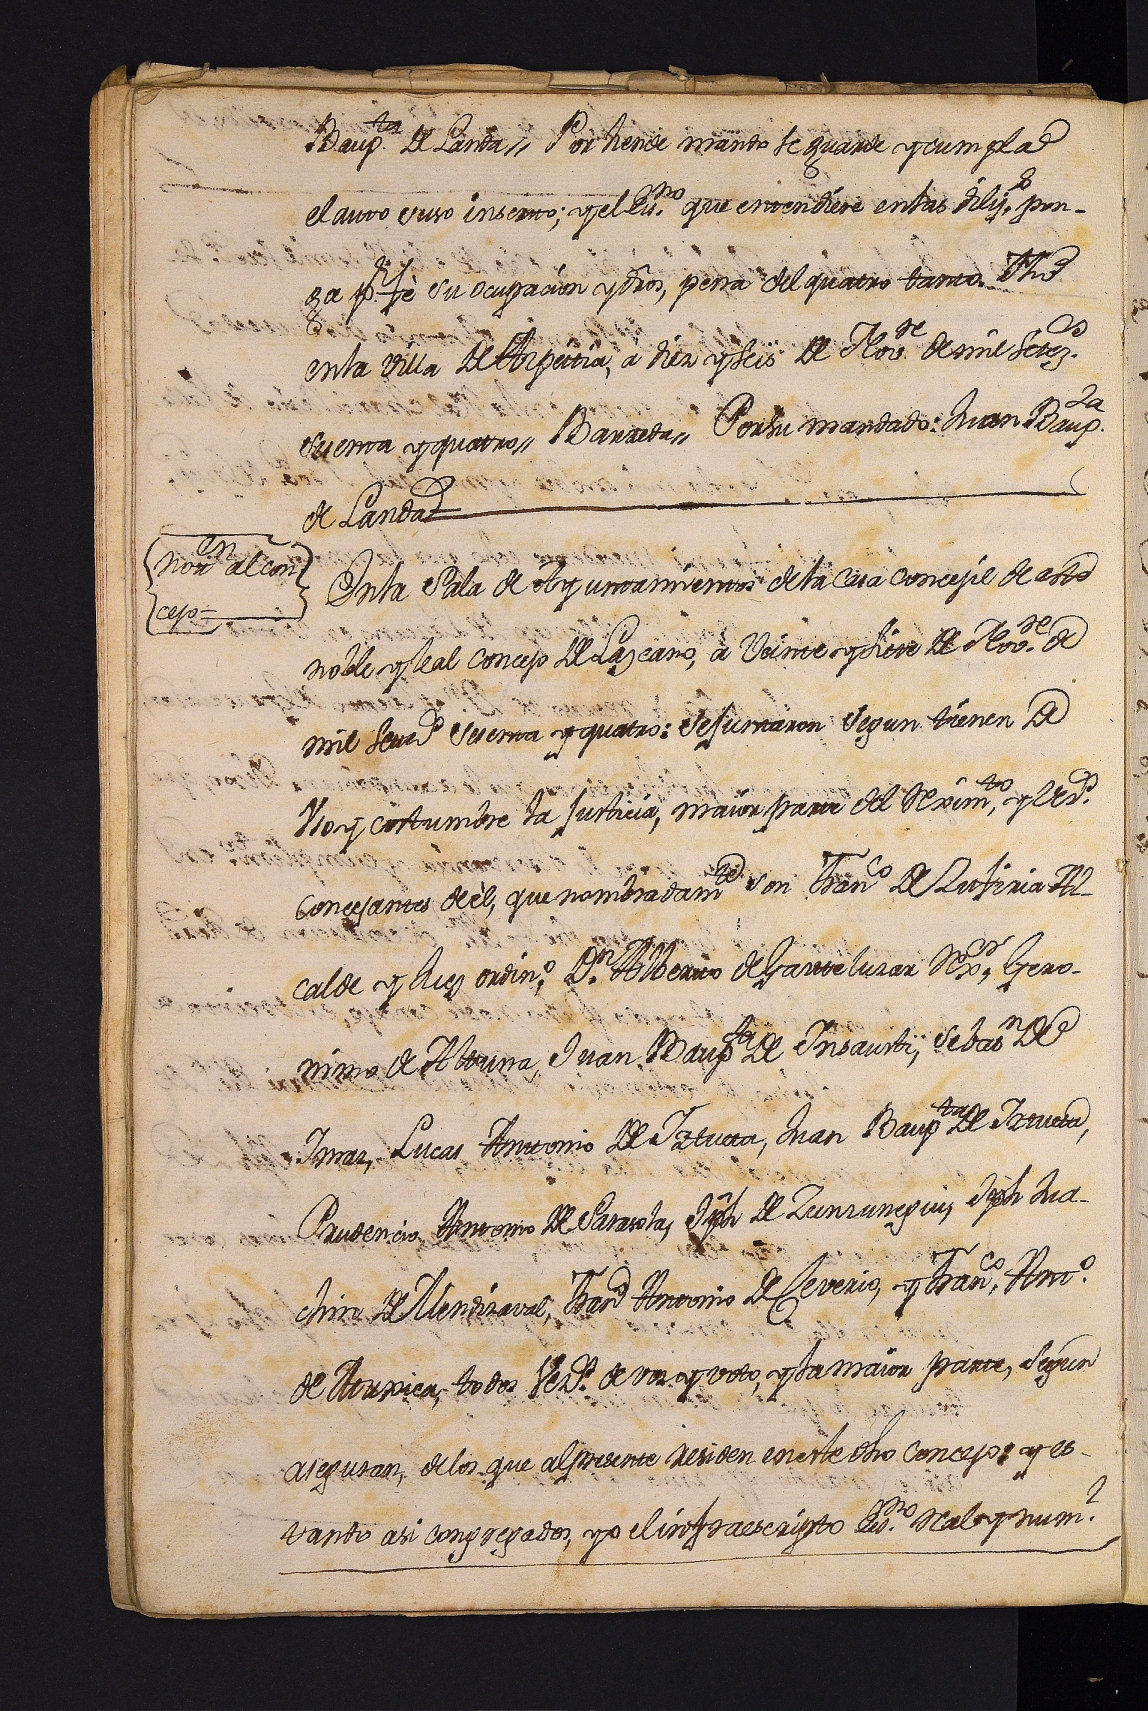 Baup.ta de Landa,, Por hende mando se guarde y cumpla
el auto suso inserto; y el Es.no que entendiere en las dilij.s pon-
ga p.r fè su ocupacion y dros, pena del quatro tanto. Fho
en la villa de Azpeitia, a diez y seis de Nov.re de mil setez.s
sesenta y quatro,, Barreda,, Por su mandado: Juan Baup.ta
de Landa
Noton al con
cejo=
En la Sala de Ayuntamientos de la casa concejil de este
noble y leal concejo de Lazcano, à veinte y siete de Nov.re de
mil setez.s sesenta y quatro: se juntaron segun tienen de
uso y costumbre la justicia, maior parte del Reximto, y vez.s
concejantes de èl, que nombradamte son Fran.co de Zufiria Al-
calde y Juez ordin.o, D.n Alberto de Garteluzar Rexor, Gero-
nimo de Altuna, Juan Baupta de Insausti, Sebasn de
Imaz, Lucas Antonio de Iztueta, Juan Baupta de Iztueta,
Prudencio Antonio de Sarasola, Jph de Zunzunegui, Jph Jua-
chin de Mendizaval, Franco Antonio de Ceverio, y Fran.co Ant.o
de Munica, todos vez.s de voz y voto, y la maior parte, segun
aseguran, de los que al presente residen en este dho concejo: y es-
tando asi congregados, yo el infraescripto Es.no Real y num.l